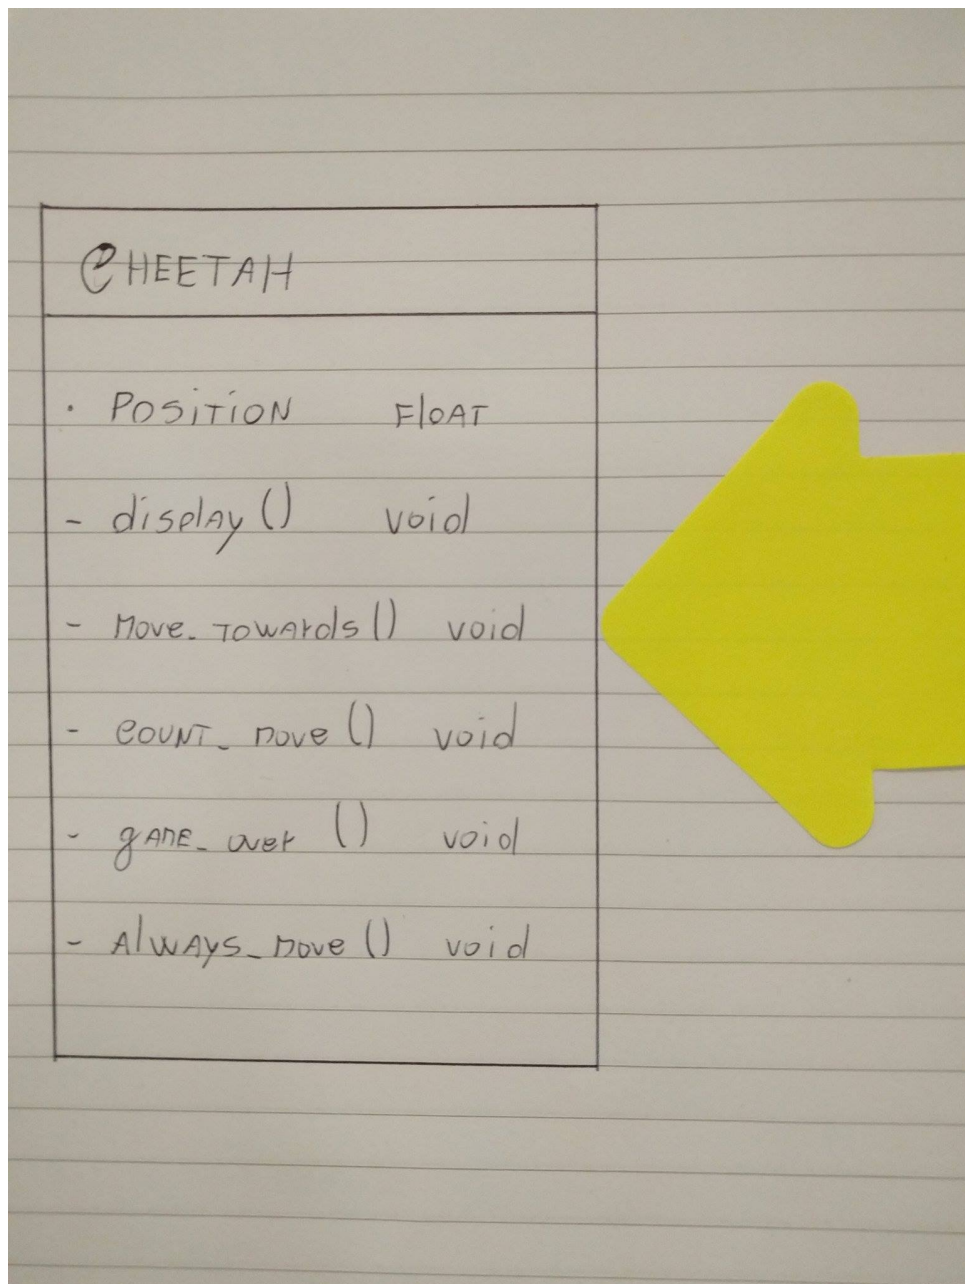 CHEETAH
· POSITION FLOAT
- display() void
- Move_TOWARds() void
- COUNT_Move() void
- gAME_over () void
- AlWAYS_Move() void